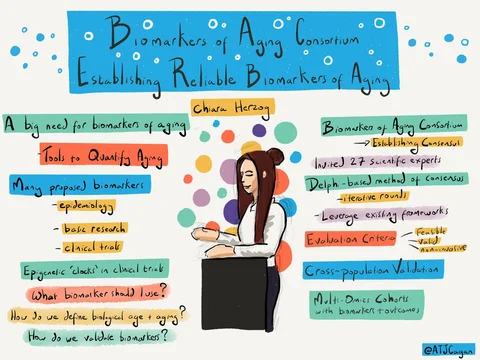 Biomarkers of Aging Consortium
Establishing Reliable Biomarkers of Aging
Chiara Herzog
A big need for biomarkers of aging
- Tools to Quantify Aging
Many proposed biomarkers
- epidemiology
- basic research
- clinical trials
Epigenetic 'clocks' in clinical trials
What biomarker should I use?
How do we define biological age + aging?
How do we validate biomarkers?
Biomarkers of Aging Consortium
→ Establishing Consensus
Invited 27 scientific experts
Delphi-based method of consensus
- iterative rounds
- Leverage existing frameworks
Evaluation Criteria
feasible
valid
non-invasive
Cross-population Validation
Multi-Omics Cohorts
with biomarkers + outcomes
@ATJCagan